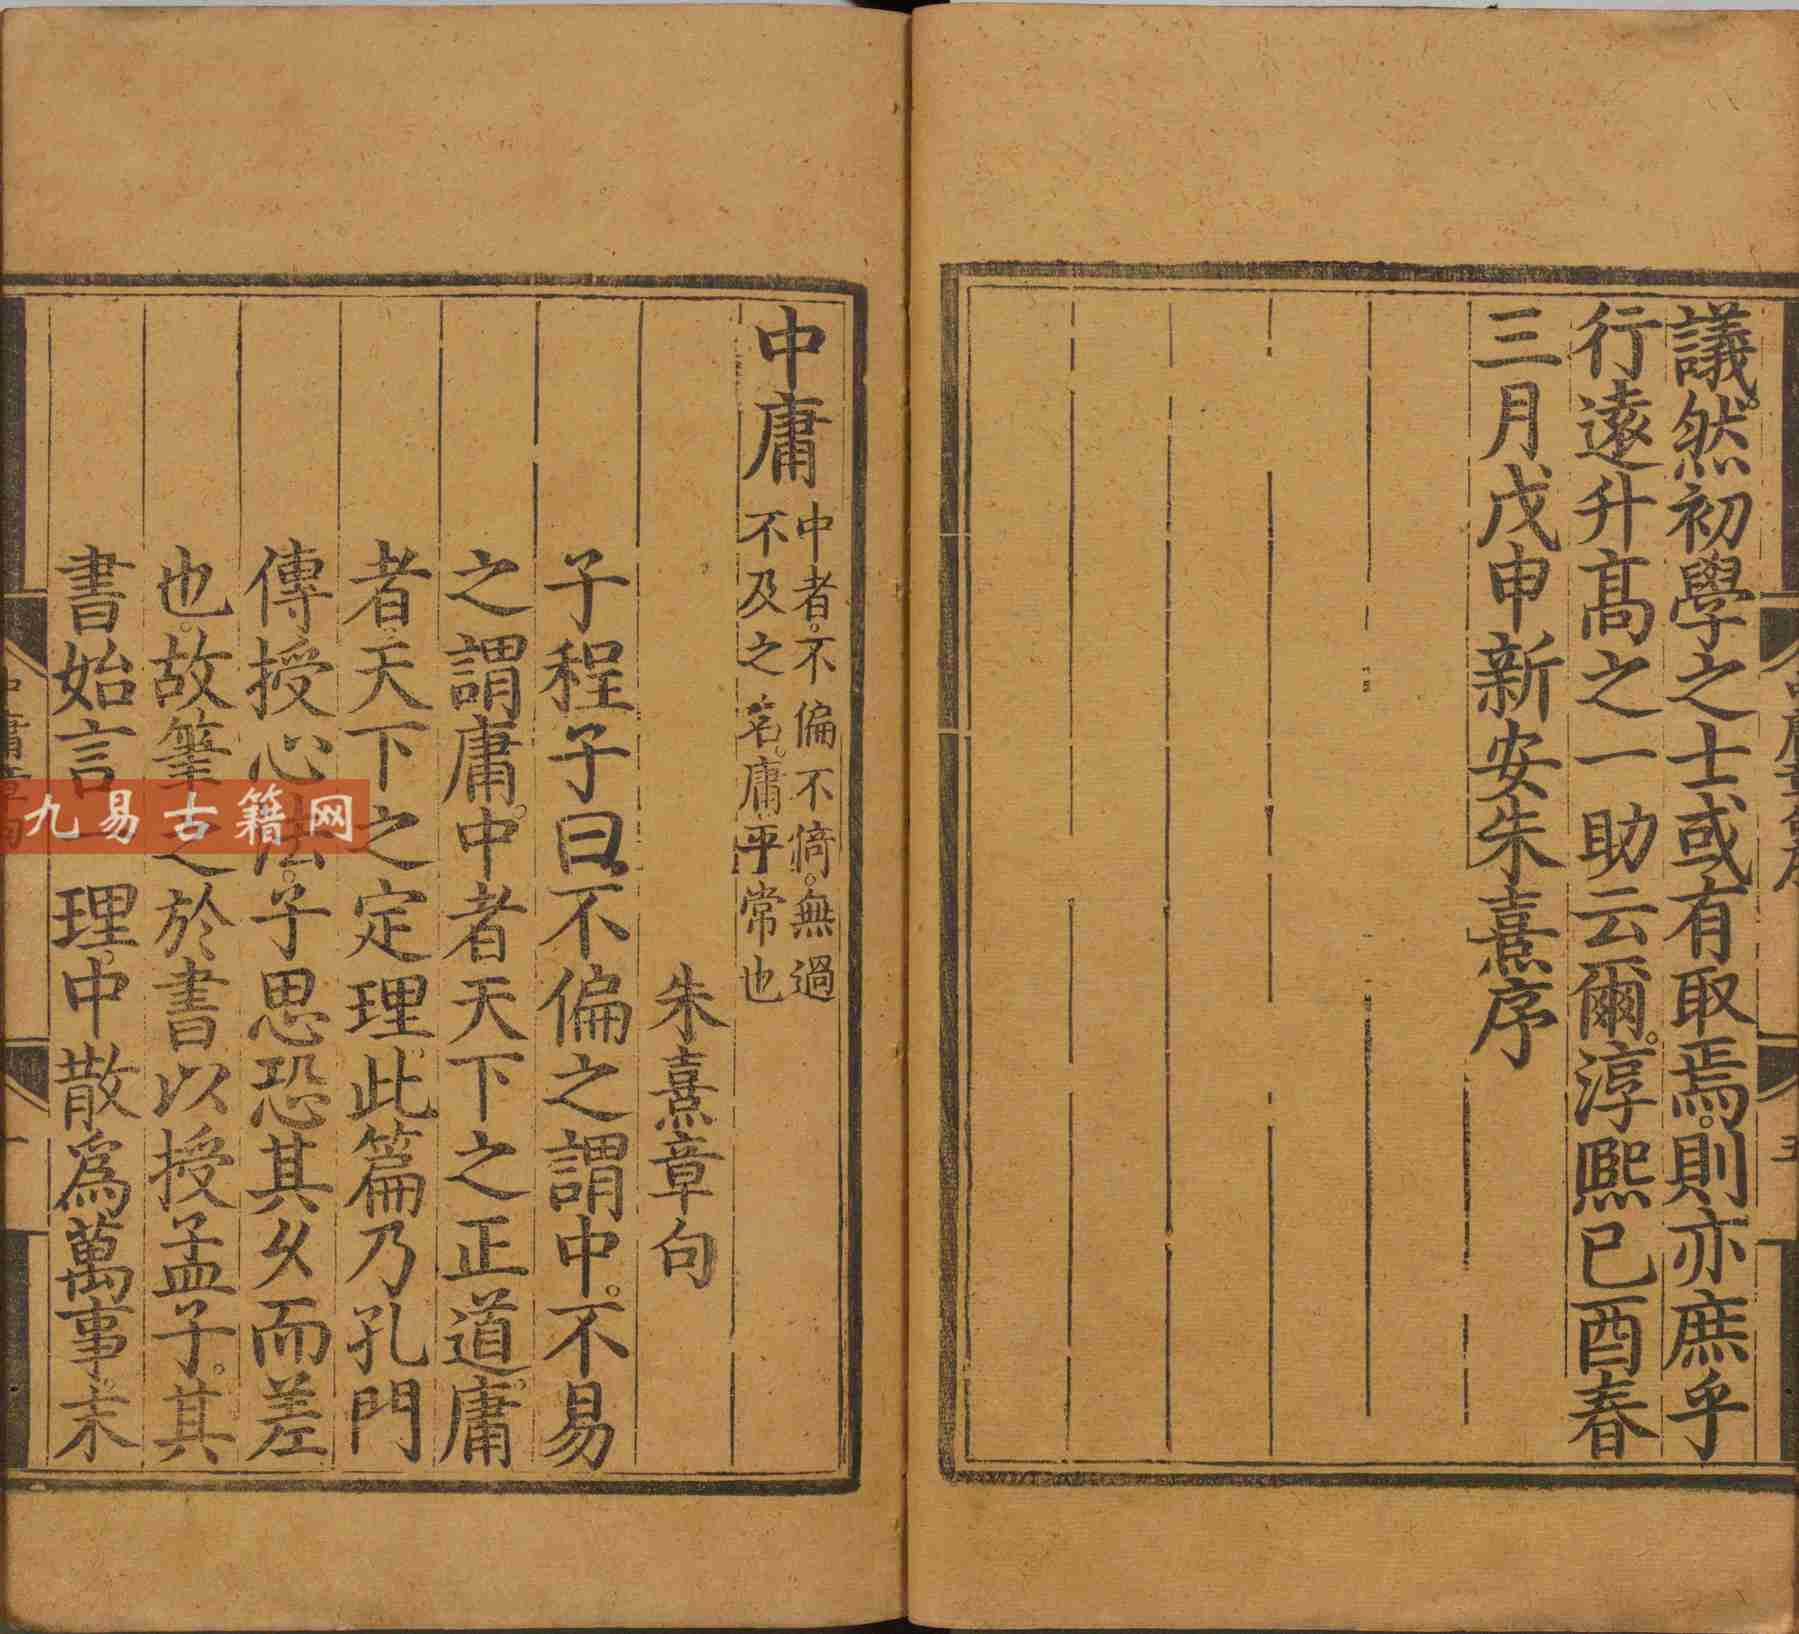 議。然初學之士或有取焉。則亦庶乎
行遠升高之一助云爾。淳熙已酉春
三月戊申新安朱熹序
中庸
中者。不偏不倚。無過
不及之名。庸平常也
朱熹章句
子程子曰不偏之謂中。不易
之謂庸。中者天下之正道。庸
者天下之定理。此篇乃孔門
傳授心法。子思恐其久而差
也。故筆之於書以授孟子。其
書始言一理。中散爲萬事。末
九易古籍网